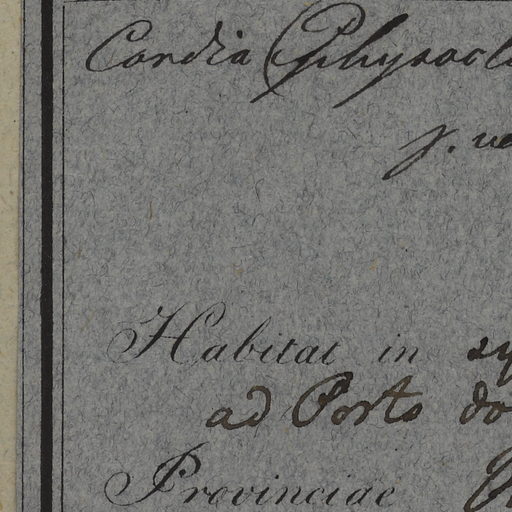 Cordia (Physocl
γ. ve
Habitat in sy
ad Porto do
Provinciae